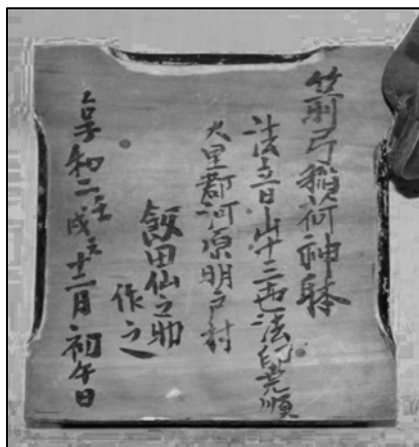 箭弓稲荷神躰
法音山十三世法印堯順
大里郡河原明戸村
飯田仙之助
作之
享和二壬戌天十二月初午日